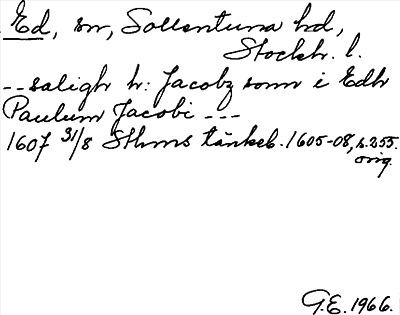 Ed, sn, Sollentuna hd,
Stockh. l.
-- saligh h: Jacobz sonn i Edh
Paulum Jacobi ---
1607 31/8 Sthms tänkeb. 1605-08, s. 255.
orig.
G.E. 1966.